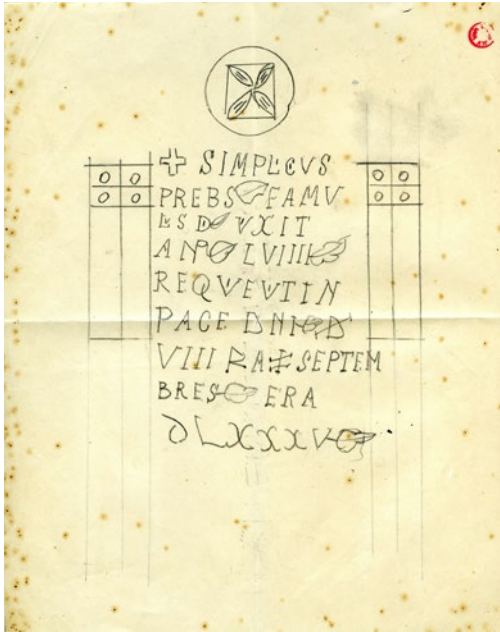 ✠ SIMPLICVS
PREBS FAMV
LS DI VXIT
ANO LVIIII
REQVEVTIN
PACE DNI D
VIII KAL SEPTEM
BRES ERA
DLXXXV